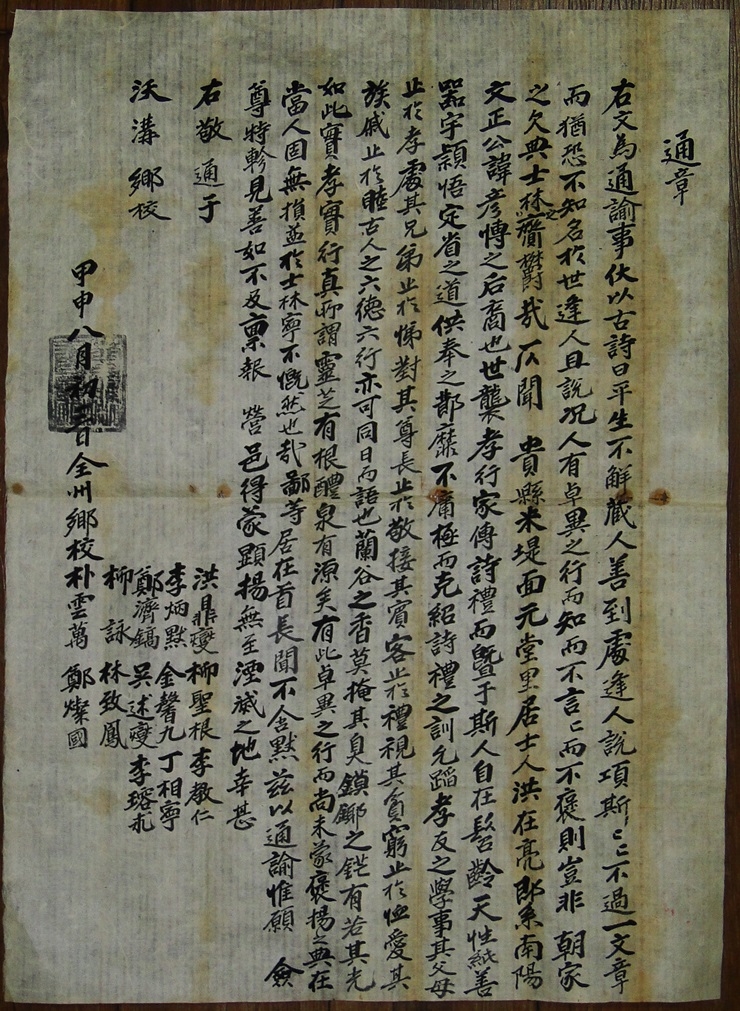 通章
右文為通諭事伏以古詩曰平生不解藏人善到處逢人說項斯〻〻不過一文章
而猶恐不知名於世逢人且說况人有卓異之行而知而不言〻而不褒則豈非 朝家
之欠典士林之齎欝哉仄聞 貴縣米堤面元堂里居士人洪在亮郎系南陽
文正公諱彦博之后裔也世襲孝行家傳詩禮而曁于斯人自在髫齡天性純善
器宇穎悟定省之道供奉之節靡不庸極而克紹詩禮之訓允蹈孝友之學事其父母
止於孝處其兄弟止於悌對其尊長止於敬接其賓客止於禮視其貧窮止於恤愛其
族戚止於睦古人之六德六行亦可同日而語也蘭谷之香莫掩其臭鏌鎁之鋩有若其光
如此實孝實行真所謂靈芝有根醴泉有源矣有此卓異之行而尚未蒙褒揚之典在
當人固無損益於士林寧不慨然也哉鄙等居在首長聞不含默玆以通諭惟願 僉
尊特軫見善如不及稟報 營邑得蒙顕揚無至湮滅之地幸甚
右敬通于
沃溝鄉校
甲申八月初 日全州鄉校朴雲萬 鄭燦國
柳 詠 林致鳳
鄭濟鎬 吳述燮 李瑢
李炳默 金馨九 丁相寧
洪鼎燮 柳聖根 李敎仁